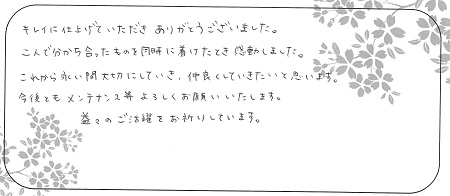 キレイに仕上げていただき ありがとうございました。
二人で分かち合ったものを同時に着けたとき 感動しました。
これから永い間大切にしていき、仲良くしていきたいと思います。
今後とも メンテナンス等 よろしくお願いいたします。
益々のご活躍をお祈りしています。